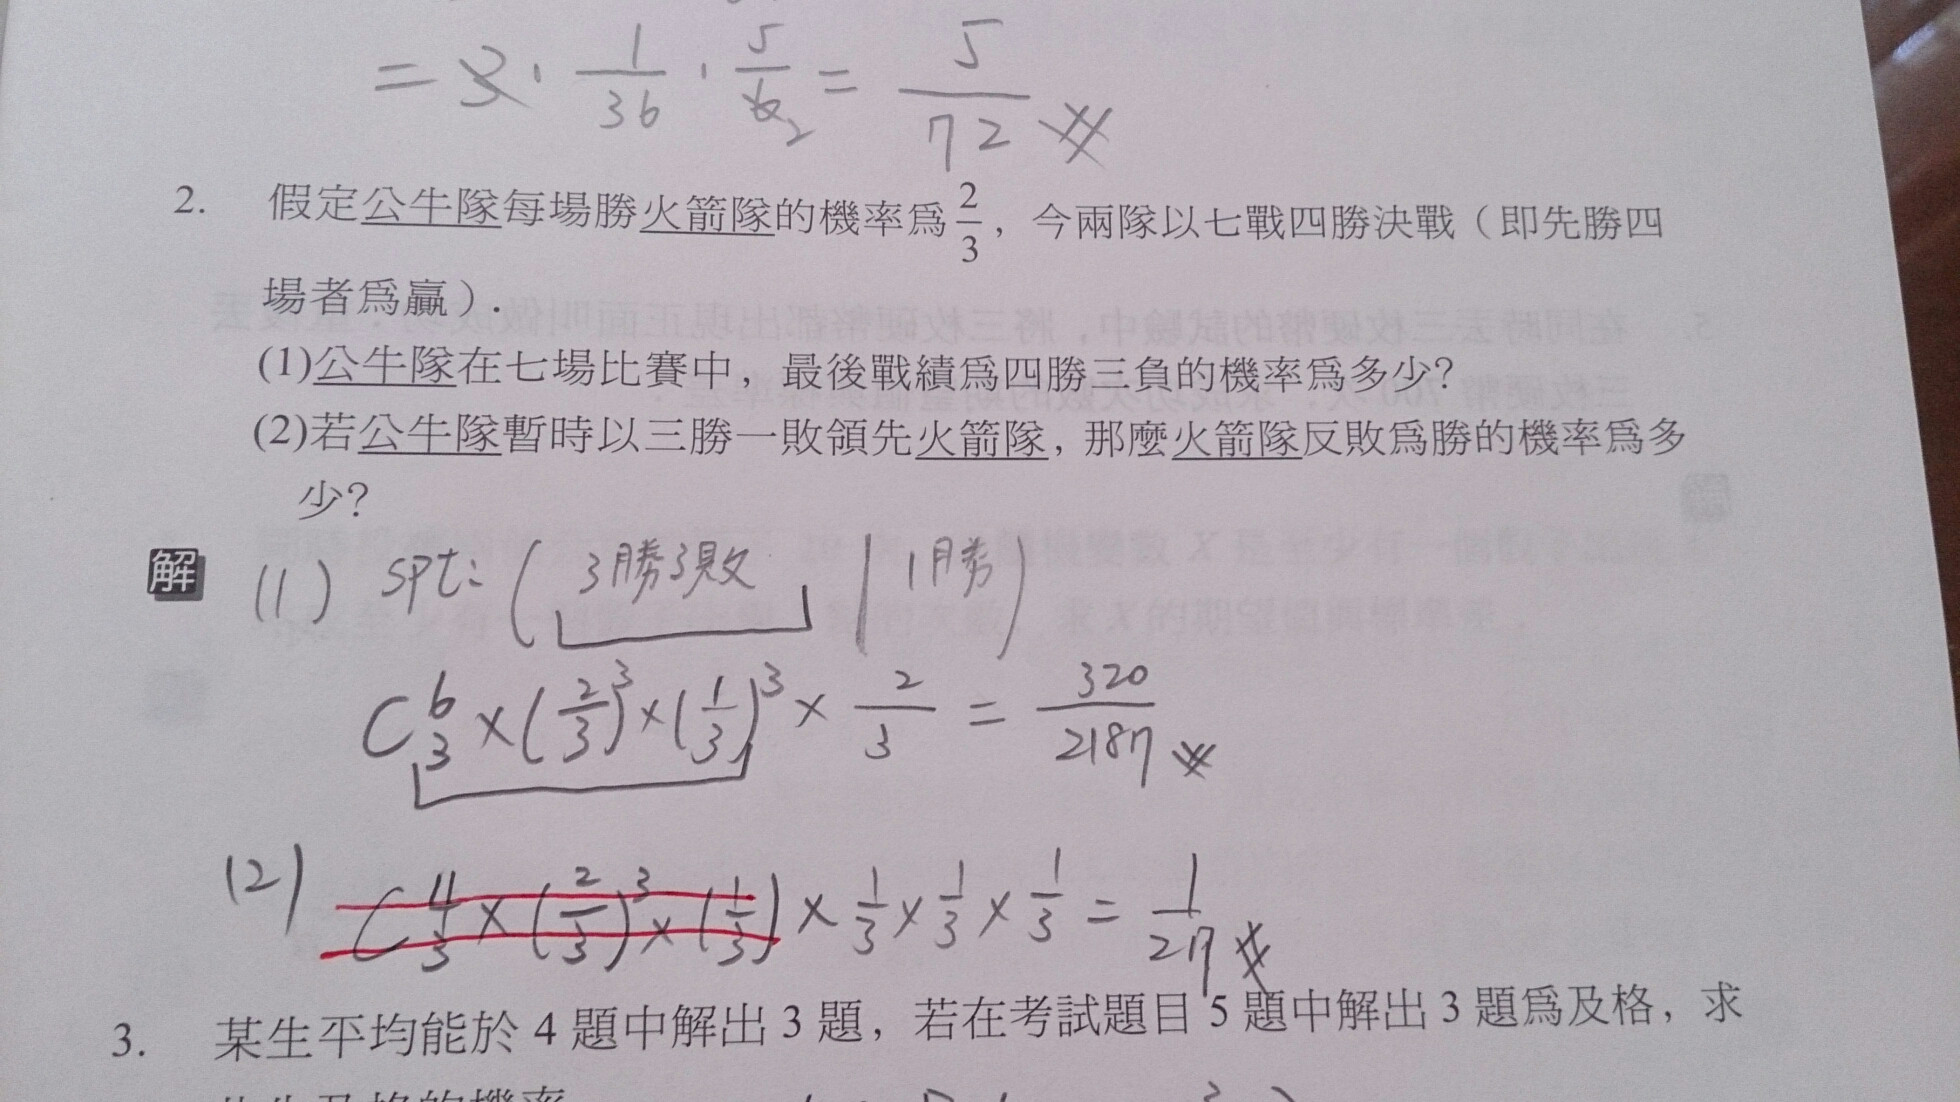 = 3 · 1/36 · 5/6 2 = 5/72
2. 假定公牛隊每場勝火箭隊的機率為 2/3，今兩隊以七戰四勝決戰（即先勝四
場者為贏）.
(1)公牛隊在七場比賽中，最後戰績為四勝三負的機率為多少？
(2)若公牛隊暫時以三勝一敗領先火箭隊，那麼火箭隊反敗為勝的機率為多
少？
解 (1) spt: ( 3勝3敗 | 1勝 )
C 6 3 × (2/3)^3 × (1/3)^3 × 2/3 = 320/2187
(2) C 4 3 × (2/3)^3 × (1/3) × 1/3 × 1/3 × 1/3 = 1/27
3. 某生平均能於 4 題中解出 3 題，若在考試題目 5 題中解出 3 題為及格，求